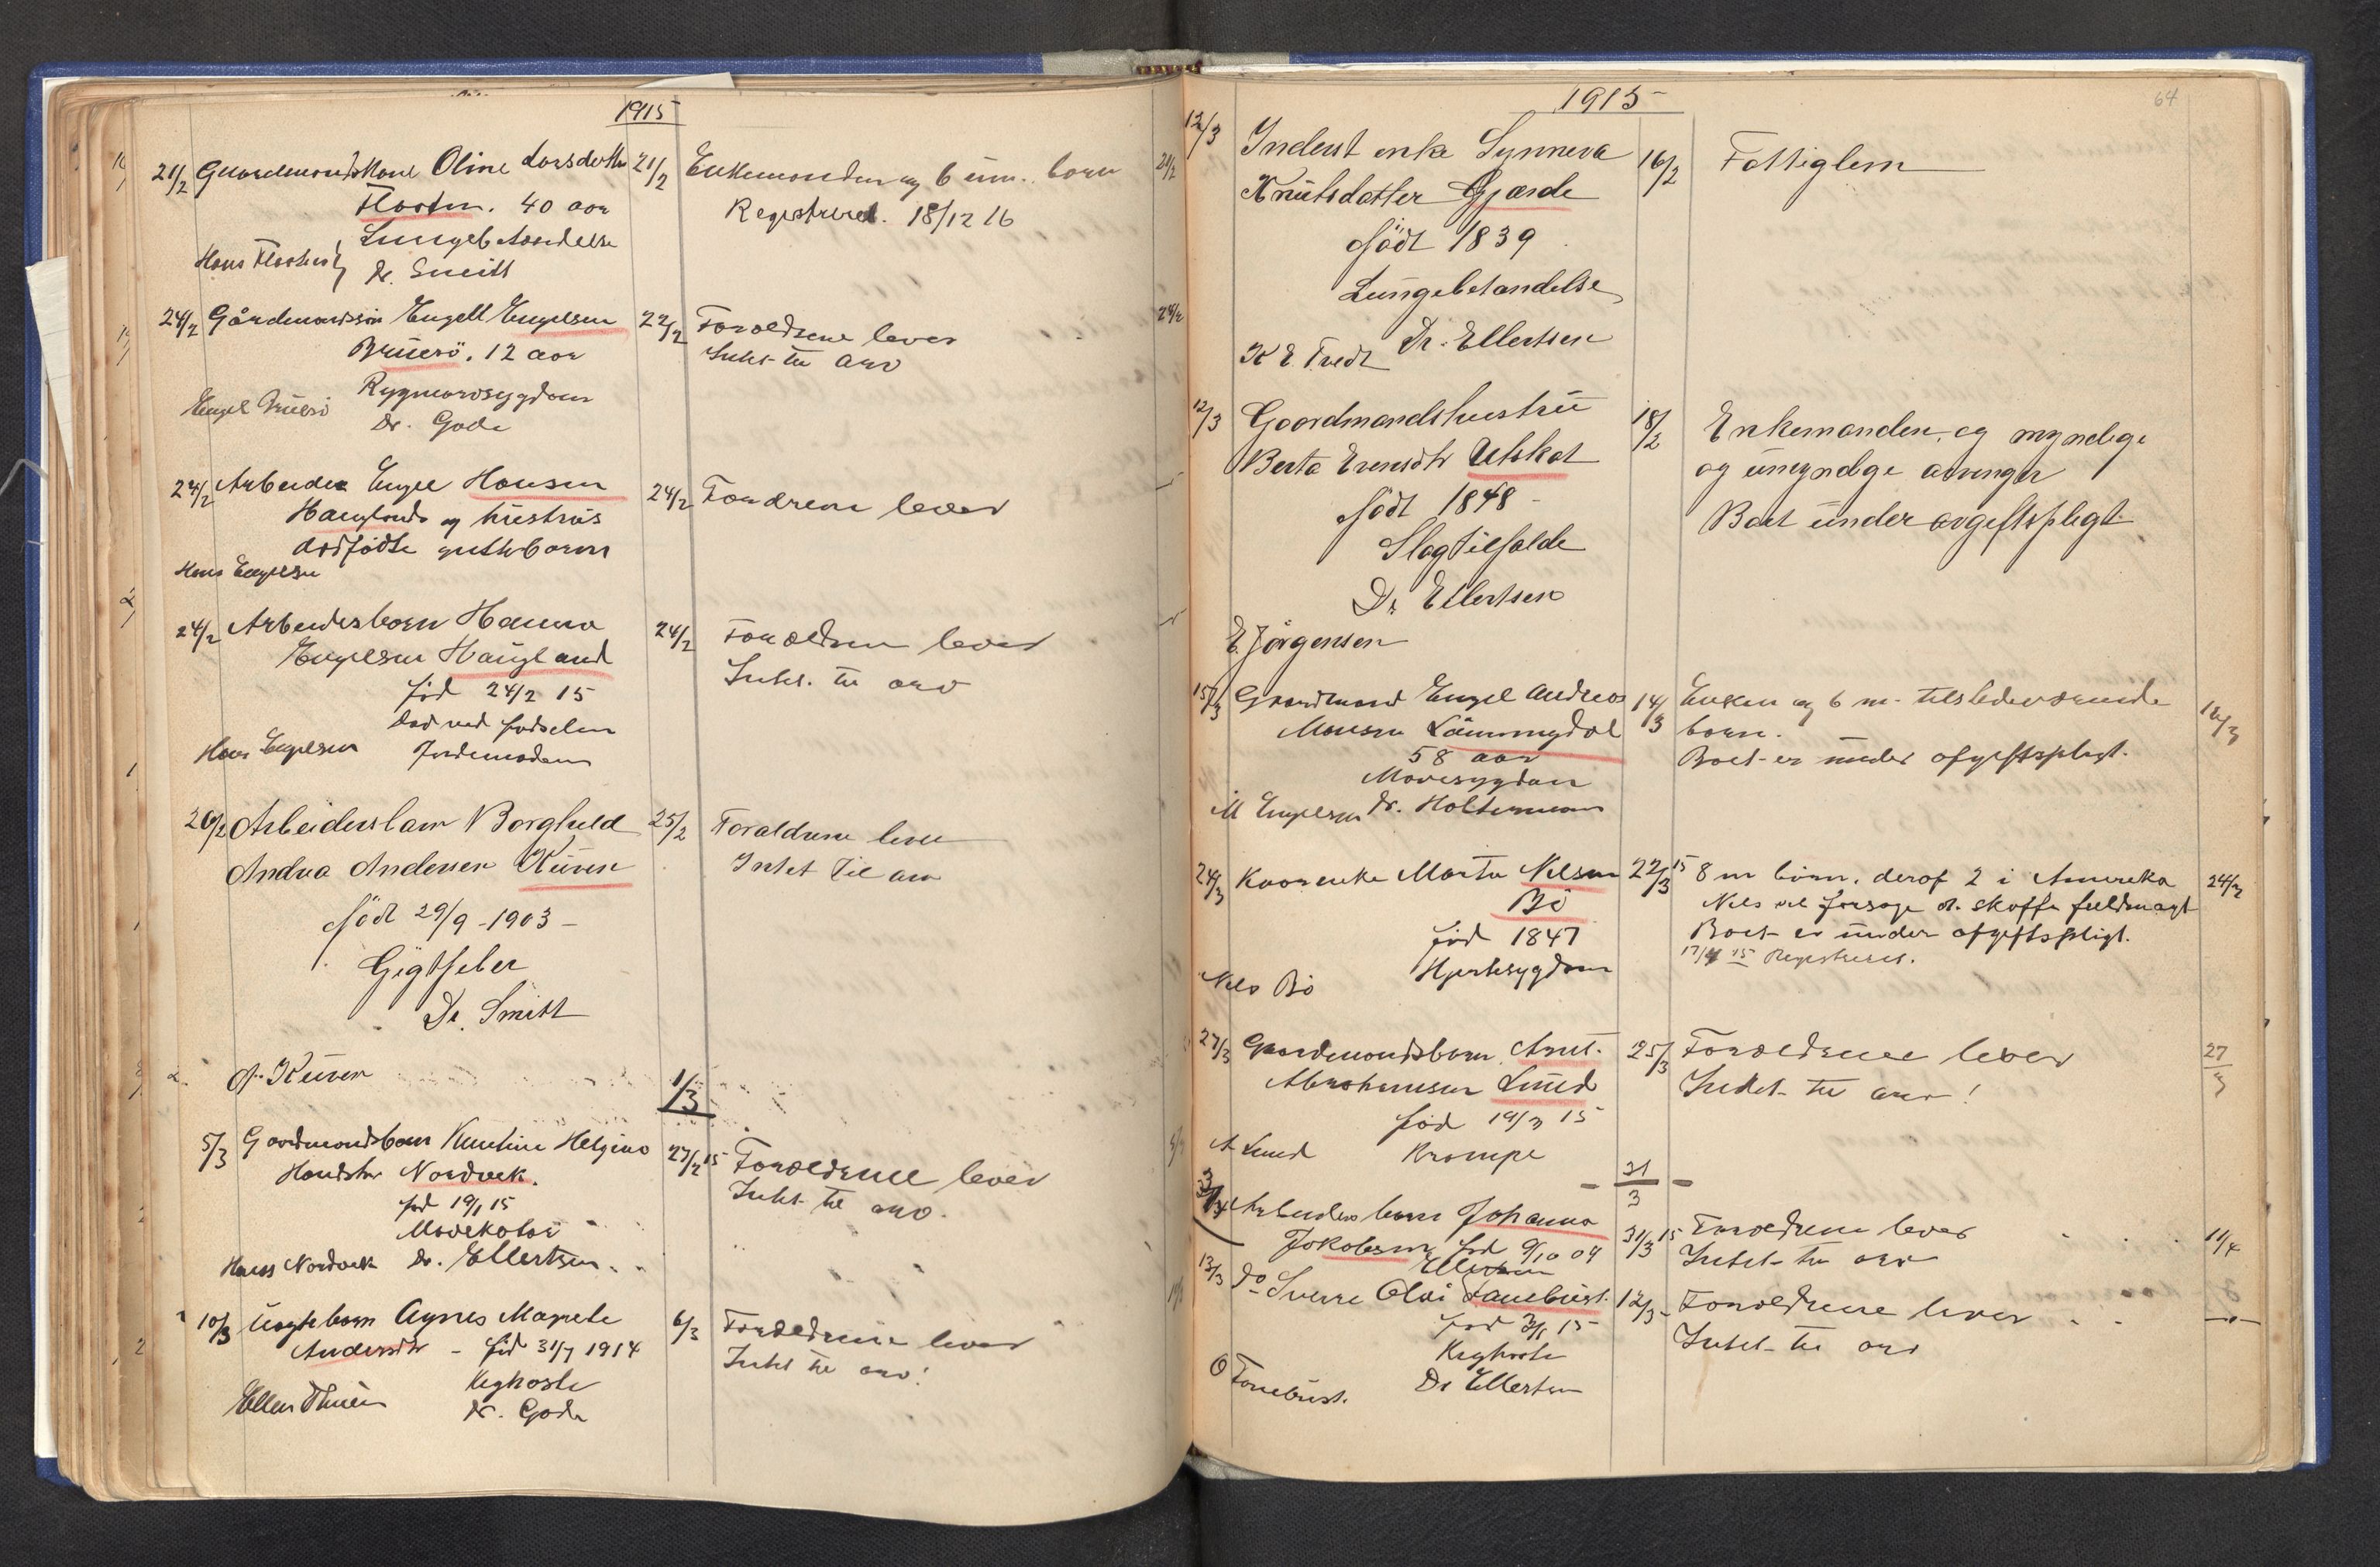 1915
21/2 Gaardmandskone Oline Larsdatter 21/2 Enkemanden og 6 um. born
Flaaten. 40 aar Registreret. 18/12 16
Lungebetændelse
Hans Flaaten Dr. Smitt
24/2 Gårdmandssön Engell Engelsen 22/2 Forældrene lever 24/2
Bruerö. 12 aar Intet til arv
Rygmarvsygdom
Engel Bruerö
Dr. Gade
24/2 Arbeider Engel Hansen 24/2 Forældrene lever
Haugland og hustrus
dødfödte guttebarn
Hans Engelsen
24/2 Arbeidesbarn Hanna 24/2 Forældrene lever
Engelsen Haugland Intet. til arv
föd 24/2 15
Död ved fødselen
Hans Engelsen Jordemoderen
26/2 Arbeidersbarn Borghild 25/2 Forældrene lever
Andrea Andersen Kuven Intet til arv
Födt 29/9 - 1903 -
Gigtfeber
Dr. Smitt
A. Kuven
1/3
5/3 Gaardmandsbarn Helgine 27/2 15 Forældrene lever
Hansdtr Nordvik. Intet til arv.
föd 19/1 15
Mavekatar
Hans Nordvik Dr. Ellertsen.
10/3 Uægtebarn Agnes Margrete 6/3 Forældrene lever
Andersdtr - föd 31/7 1914 Intet til arv!
Kighoste
Ellen Dr. Gade
1915 64
12/3 Inderst enke Synneva 16/2 Fattiglem
Knutsdatter Gjærde
Födt 1839
Lungebetændelse
Dr. Ellertsen
K E Tvedt
12/3 Gaardmandshustru 18/2 Enkemanden, og myndige
Berta Evensdtr Utskot og umyndige arvinger
Födt 1848 - Boet under avgiftspligt
Slagtilfælde
Dr Ellertsen
E. Jörgensen
15/3 Gaardmand Engel Andreas 14/3 Enken og 6 m. tilstedeværende 16/3
Monsen Lönningdal born.
58 aar Boet er under afgiftspligt.
Mavesygdom
M Engelsen Dr. Holtermann
24/3 Kaarenke Marta Nilsen 22/3 15 8 m börn. deraf 2 i Amerika 24/3
Bö Nils vil forsøge at skaffe fuldmagt
föd 1847 Boet er under afgiftspligt.
Hjertesygdom 17/4 15 Registreret.
Nils Bö
27/3 Gaardmandsbarn Arnt. 25/3 Forældrene lever 27/3
Abrahamsen Lund Intet til arv!
föd 19/3 15
A Lund Krampe
- 31/3 -
Arbeiders barn Johanna 31/3 15 Forældrene lever 11/4
Jakobsen föd 9/10 04 Intet til arv
Ellertsen
13/3 Do Sverre Olai Tanebust. 12/3 - Forældrene lever
föd 3/1 15 Intet til arv
Kighoste
O Tanebust. Dr Ellertsen